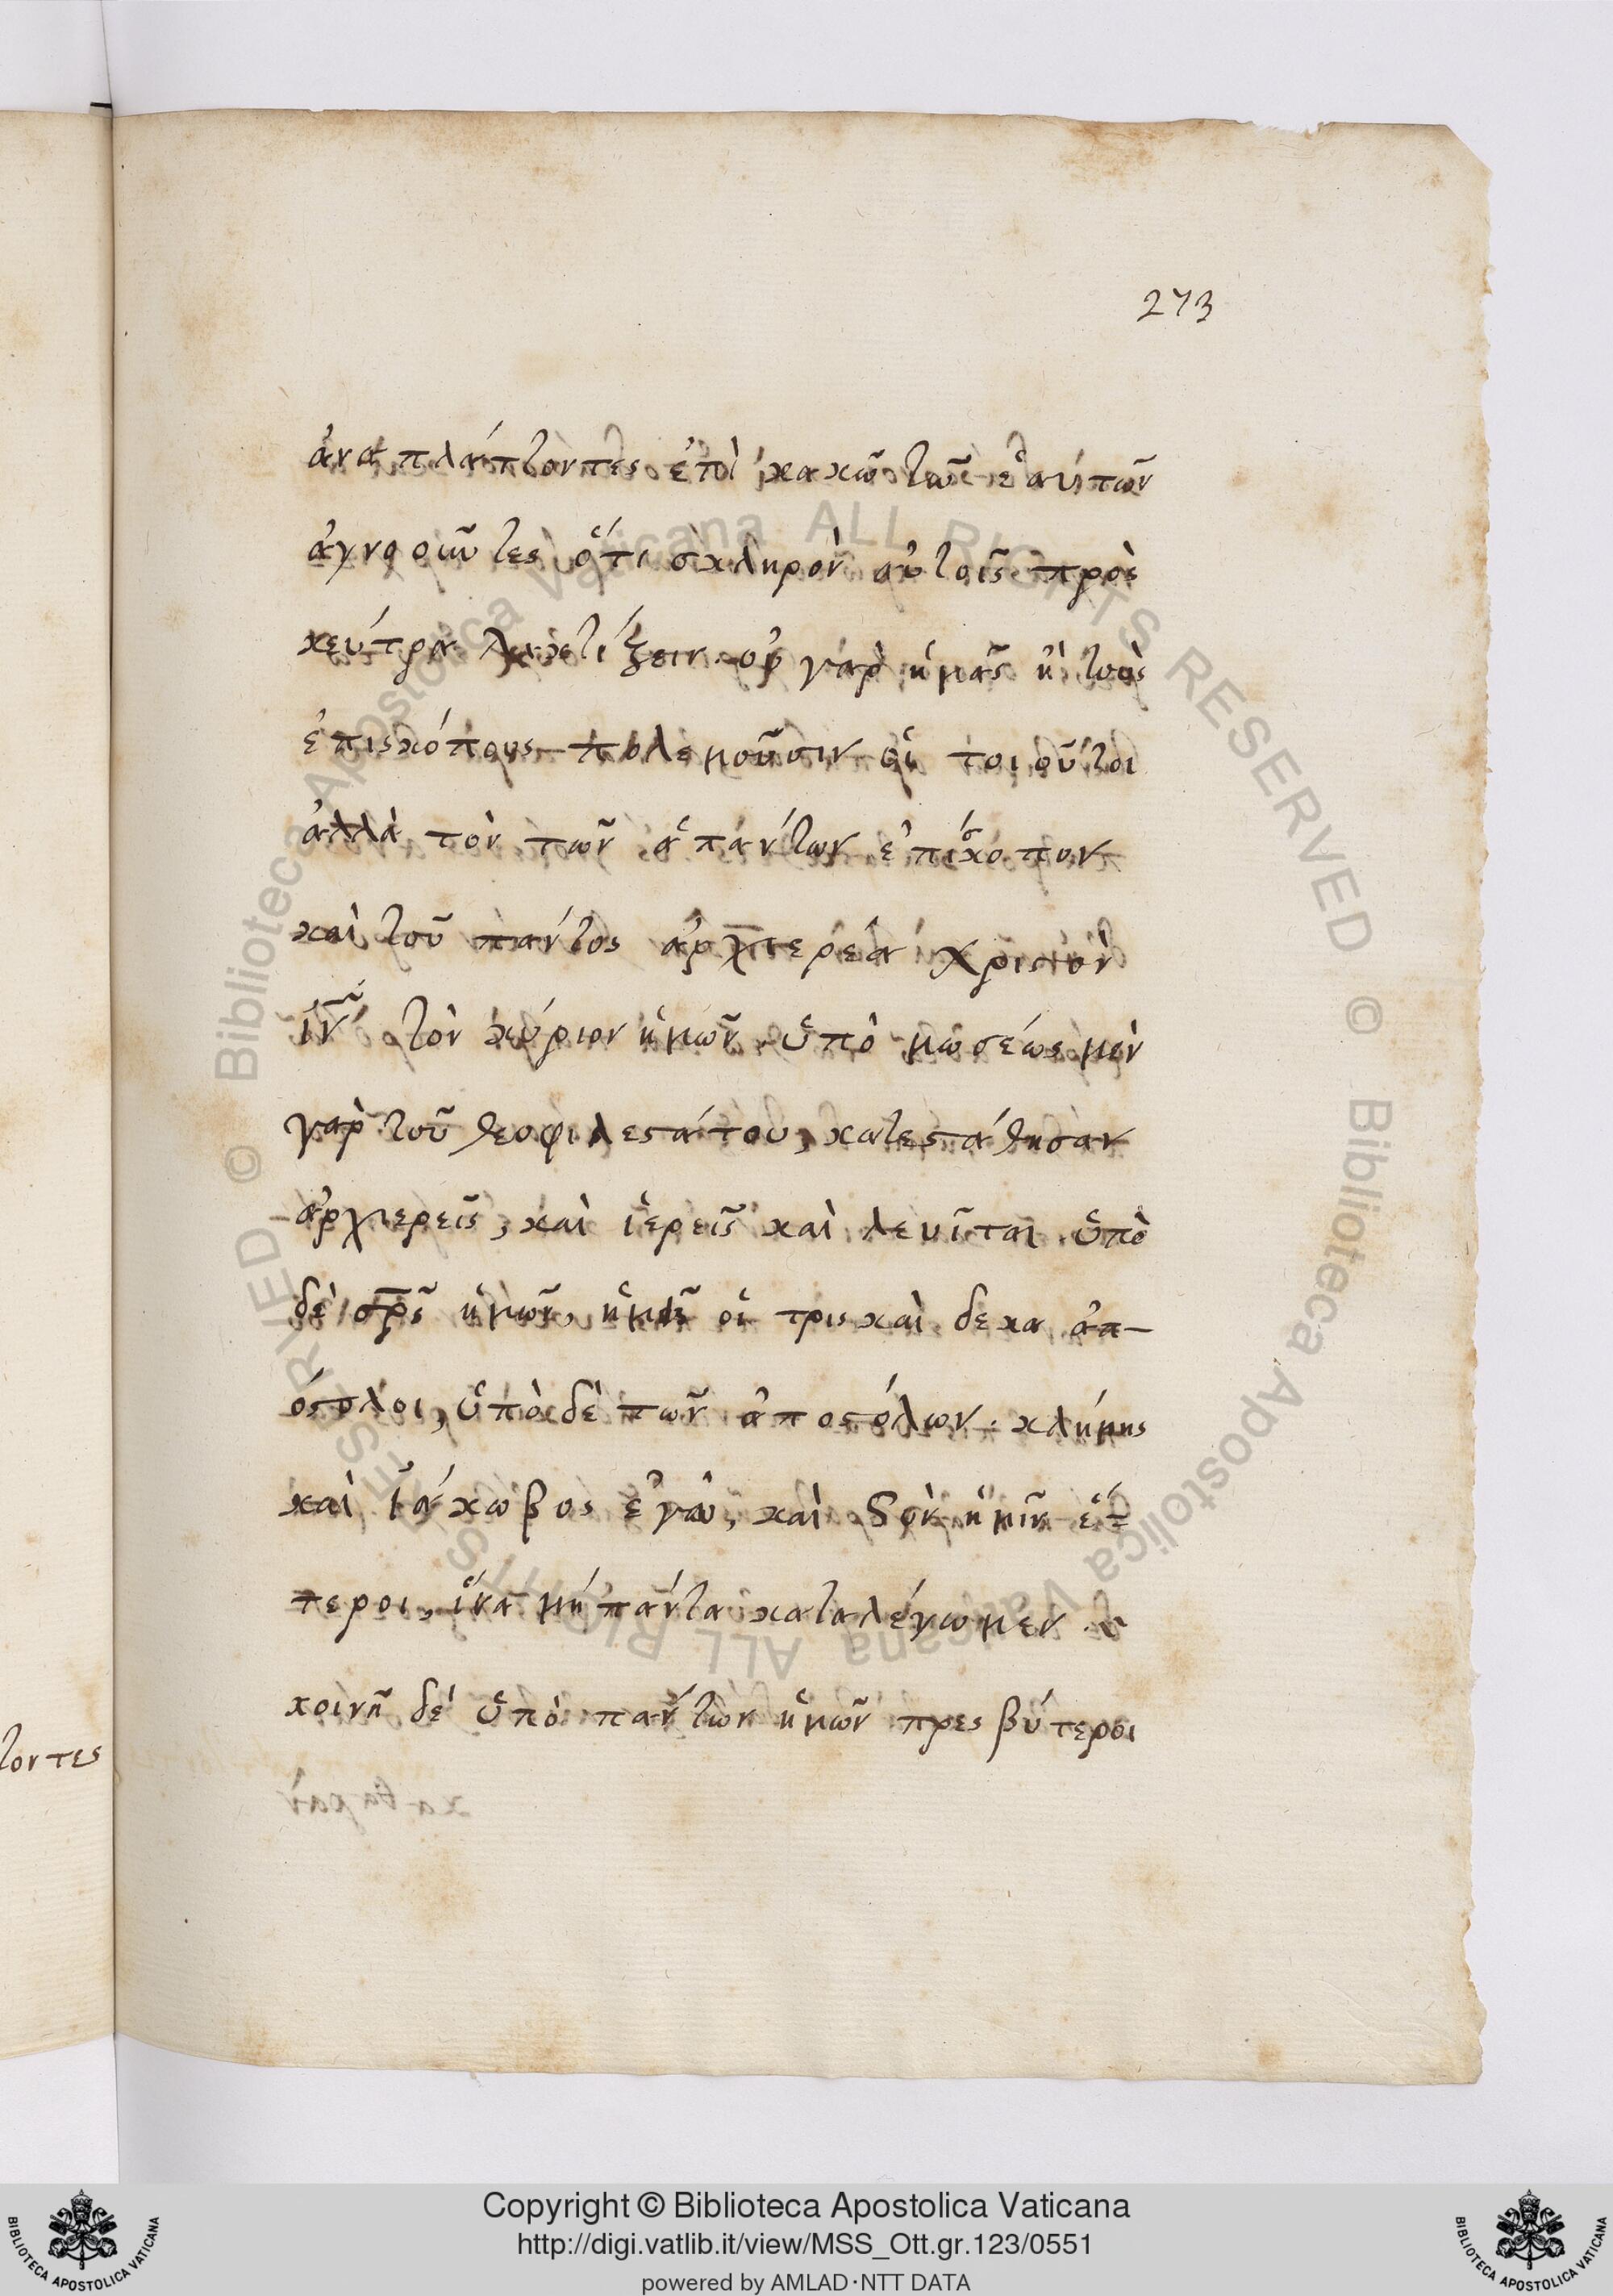 273
ἀναπλάττοντες ἐπὶ κακῶ τῶ ἑαυτῶν
ἀγνοοῦντες ὅτι σκληρὸν αὐτοῖς πρὸς
κέντρα λακτίζειν. οὐ γὰρ ἡμᾶς ἢ τοὺς
ἐπισκόπους πολεμοῦσιν οἱ τοιοῦτοι
ἀλλὰ τὸν τῶν ἁπάντων ἐπίσκοπον
καὶ τοῦ παντὸς ἀρχιερέα χριστὸν
ιν͂ τὸν κύριον ἡμῶν. ὑπὸ μωσέως μὲν
γὰρ τοῦ θεοφιλεστάτου, κατεστάθησαν
ἀρχιερεῖς, καὶ ἱερεῖς καὶ λευῖται. ὑπὸ
δὲ σρ̅ς ἡμῶν, ἡμεῖς οἱ τρισκαίδεκα ἀπ-
όστολοι, ὑπὸ δὲ τῶν ἀποστόλων. κλήμης
καὶ ἰάκωβος ἐγὼ, καὶ σὺν ἡμῖν ἕ-
τεροι, ἵνα μὴ πάντα καταλέγωμεν
κοινῆ δὲ ὑπὸ πάντων ἡμῶν πρεσβύτεροι
τοντες
Copyright © Biblioteca Apostolica Vaticana
http://digi.vatlib.it/view/MSS_Ott.gr.123/0551
powered by AMLAD·NTT DATA
BIBLIOTECA APOSTOLICA VATICANA
BIBLIOTECA APOSTOLICA VATICANA
© Biblioteca Apostolica Vaticana ALL RIGHTS RESERVED
© Biblioteca Apostolica Vaticana ALL RIGHTS RESERVED